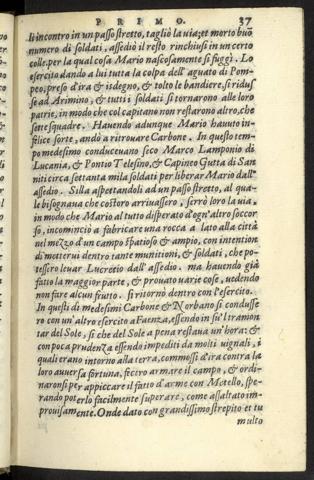 PRIMO. 37
li incontro in un passo stretto, tagliò la uia; et morto buõ
numero di soldati, assediò il resto rinchiusi in un certo
colle. per la qual cosa Mario nascosamente si fuggì. Lo
esercito dando a lui tutta la colpa dell'aguato di Pom-
peo, preso d'ira & isdegno, & tolto le bandiere, si ridus-
se ad Arimino, & tutti i soldati si tornarono alle loro
patrie, in modo che col capitano non restarono altro, che
sette squadre. Hauendo adunque Mario hauuto in-
felice sorte, andò a ritrouare Carbone. In questo tem-
po medesimo conduceuano seco Marco Lamponio di
Lucania, & Pontio Telesino, & Capineo Gutta di San
niti circa settanta mila soldati per liberar Mario dall'
assedio. Silla aspettandoli ad un passo stretto, al qua-
le bisognaua che costoro arriuassero, serrò loro la uia,
in modo che Mario al tutto disperato d'ogn'altro soccor
so, incominciò a fabricare una rocca a lato alla città
nel mezzo d'un campo spatioso & ampio, con intention
di metterui dentro tante munitioni, & soldati, che po-
tessero leuar Lucretio dall'assedio. ma hauendo già
fatto la maggior parte, & prouato uarie cose, uedendo
non fare alcun frutto. si ritornò dentro con l'esercito.
In questi dì medesimi Carbone & Norbano si condusse
ro con un'altro esercito a Faenza, essendo in su'l tramon
tar del Sole, si che del Sole a pena restaua un'hora: &
con poca prudenza essendo impediti da molti uignali, i
quali erano intorno alla terra, commossi d'ira contra la
loro auuersa fortuna, fecero armare il campo, & ordi-
naronsi per appiccare il fatto d'arme con Metello, spe-
rando poterlo facilmente superare, come assaltato im-
prouisamente. Onde dato con grandissimo strepito et tu
multo